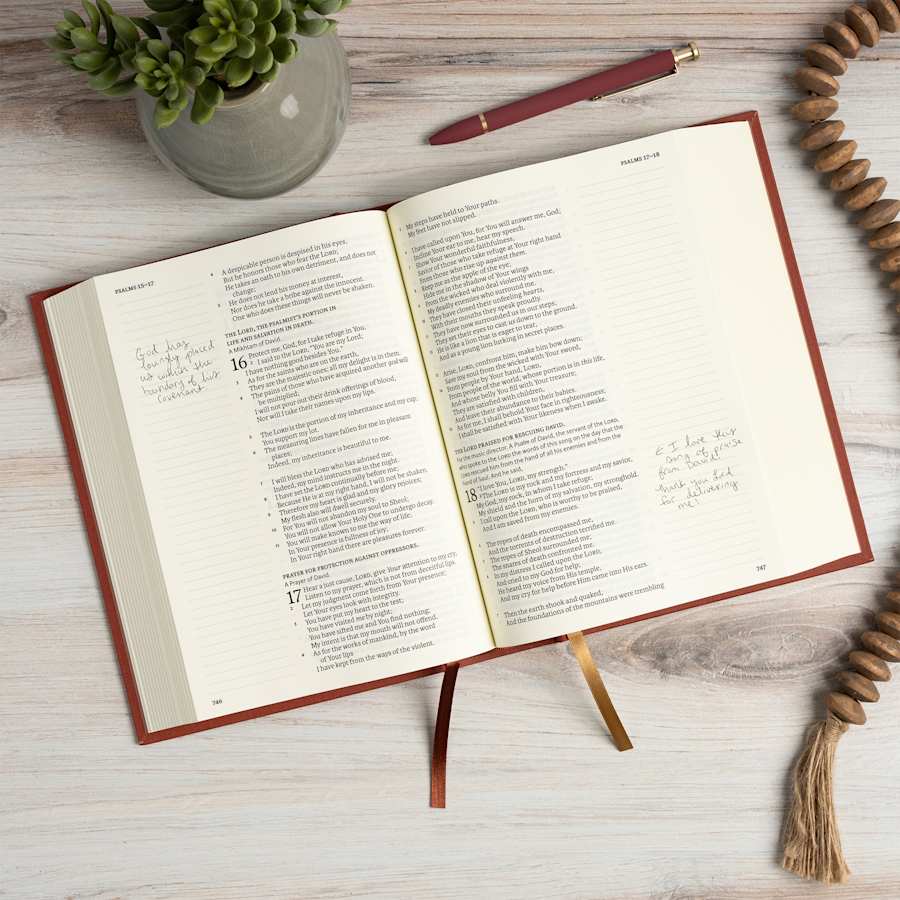 PSALMS 15–17
A despicable person is despised in his eyes,
But he honors those who fear the LORD;
He takes an oath to his own detriment, and does not
change;
5 He does not lend his money at interest,
Nor does he take a bribe against the innocent.
One who does these things will never be shaken.
THE LORD, THE PSALMIST'S PORTION IN
LIFE AND SALVATION IN DEATH.
A Mikhtam of David.
16 Protect me, God, for I take refuge in You.
2 I said to the LORD, "You are my Lord;
I have nothing good besides You."
3 As for the saints who are on the earth,
They are the majestic ones; all my delight is in them.
4 The pains of those who have acquired another god will
be multiplied;
I will not pour out their drink offerings of blood,
Nor will I take their names upon my lips.
5 The LORD is the portion of my inheritance and my cup;
You support my lot.
6 The measuring lines have fallen for me in pleasant
places;
Indeed, my inheritance is beautiful to me.
7 I will bless the LORD who has advised me;
Indeed, my mind instructs me in the night.
8 I have set the LORD continually before me;
Because He is at my right hand, I will not be shaken.
9 Therefore my heart is glad and my glory rejoices;
My flesh also will dwell securely.
10 For You will not abandon my soul to Sheol;
You will not allow Your Holy One to undergo decay.
11 You will make known to me the way of life;
In Your presence is fullness of joy;
In Your right hand there are pleasures forever.
PRAYER FOR PROTECTION AGAINST OPPRESSORS.
A Prayer of David.
17 Hear a just cause, LORD, give Your attention to my cry;
Listen to my prayer, which is not from deceitful lips.
2 Let my judgment come forth from Your presence;
Let Your eyes look with integrity.
3 You have put my heart to the test;
You have visited me by night;
You have sifted me and You find nothing;
My intent is that my mouth will not offend.
4 As for the works of mankind, by the word
of Your lips
I have kept from the ways of the violent.
God has
lovingly placed
us within the
boundary of his
covenant
746
PSALMS 17–18
5 My steps have held to Your paths.
My feet have not slipped.
6 I have called upon You, for You will answer me, God;
Incline Your ear to me, hear my speech.
7 Show Your wonderful faithfulness,
Savior of those who take refuge at Your right hand
From those who rise up against them.
8 Keep me as the apple of the eye;
Hide me in the shadow of Your wings
9 From the wicked who deal violently with me,
My deadly enemies who surround me.
10 They have closed their unfeeling hearts,
With their mouths they speak proudly.
11 They have now surrounded us in our steps;
They set their eyes to cast us down to the ground.
12 He is like a lion that is eager to tear,
And as a young lion lurking in secret places.
13 Arise, LORD, confront him, make him bow down;
Save my soul from the wicked with Your sword,
14 From people by Your hand, LORD,
From people of the world, whose portion is in this life,
And whose belly You fill with Your treasure;
They are satisfied with children,
And leave their abundance to their babies.
15 As for me, I shall behold Your face in righteousness;
I shall be satisfied with Your likeness when I awake.
THE LORD PRAISED FOR RESCUING DAVID.
For the music director. A Psalm of David, the servant of the LORD,
who spoke to the LORD the words of this song on the day that the
LORD rescued him from the hand of all his enemies and from the
hand of Saul. And he said,
18 "I love You, LORD, my strength."
2 The LORD is my rock and my fortress and my savior,
My God, my rock, in whom I take refuge;
My shield and the horn of my salvation, my stronghold.
3 I call upon the LORD, who is worthy to be praised,
And I am saved from my enemies.
4 The ropes of death encompassed me,
And the torrents of destruction terrified me.
5 The ropes of Sheol surrounded me;
The snares of death confronted me.
6 In my distress I called upon the LORD,
And cried to my God for help;
He heard my voice from His temple,
And my cry for help before Him came into His ears.
7 Then the earth shook and quaked;
And the foundations of the mountains were trembling
I love this
song of praise
from David
thank you God
for delivering
me!
747